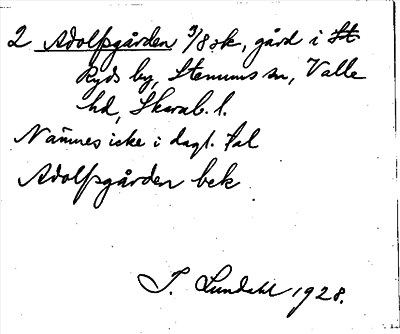 2 Adolfsgården 3/8 sk, gård i St
Ryds by, Stenums sn, Valle
hd, Skarab. l.
Nämnes icke i dagl. tal
Adolfsgården bek
I. Lundahl 1928.